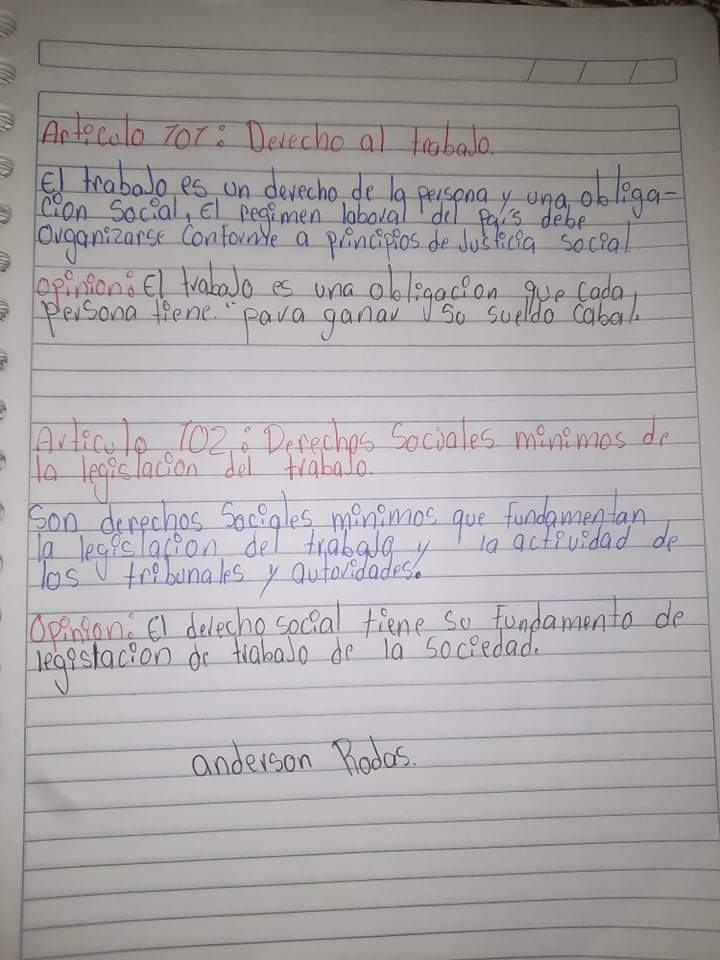 Articulo 101: Derecho al trabajo.
El trabajo es un derecho de la persona y una obliga-
cion Social, El regimen laboral del país debe
Organizarse Conforme a principios de Justicia social
opinion: El trabajo es una obligacion que cada
persona tiene. "para ganar su sueldo cabal.
Articulo 102: Derechos Sociales minimos de
la legislacion del trabajo.
Son derechos Sociales minimos que fundamentan
la legislacion del trabajo y la actividad de
los tribunales y autoridades.
Opinion: El derecho social tiene su fundamento de
legislacion de trabajo de la sociedad.
anderson Rodas.